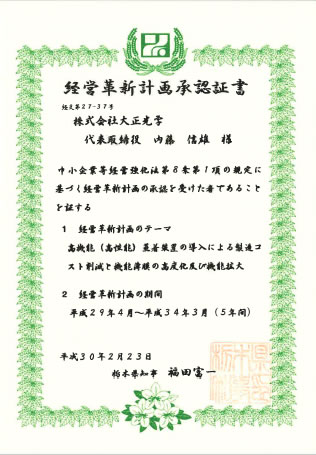 経営革新計画承認証書
経支第27-37号
株式会社大正光学
代表取締役 内藤 信雄 様
中小企業等経営強化法第8条第1項の規定に
基づく経営革新計画の承認を受けた者であること
を証する
1 経営革新計画のテーマ
高機能(高性能)蒸着装置の導入による製造コ
スト削減と機能薄膜の高度化及び機能拡大
2 経営革新計画の期間
平成29年4月~平成34年3月(5年間)
平成30年2月23日
栃木県知事 福田富一